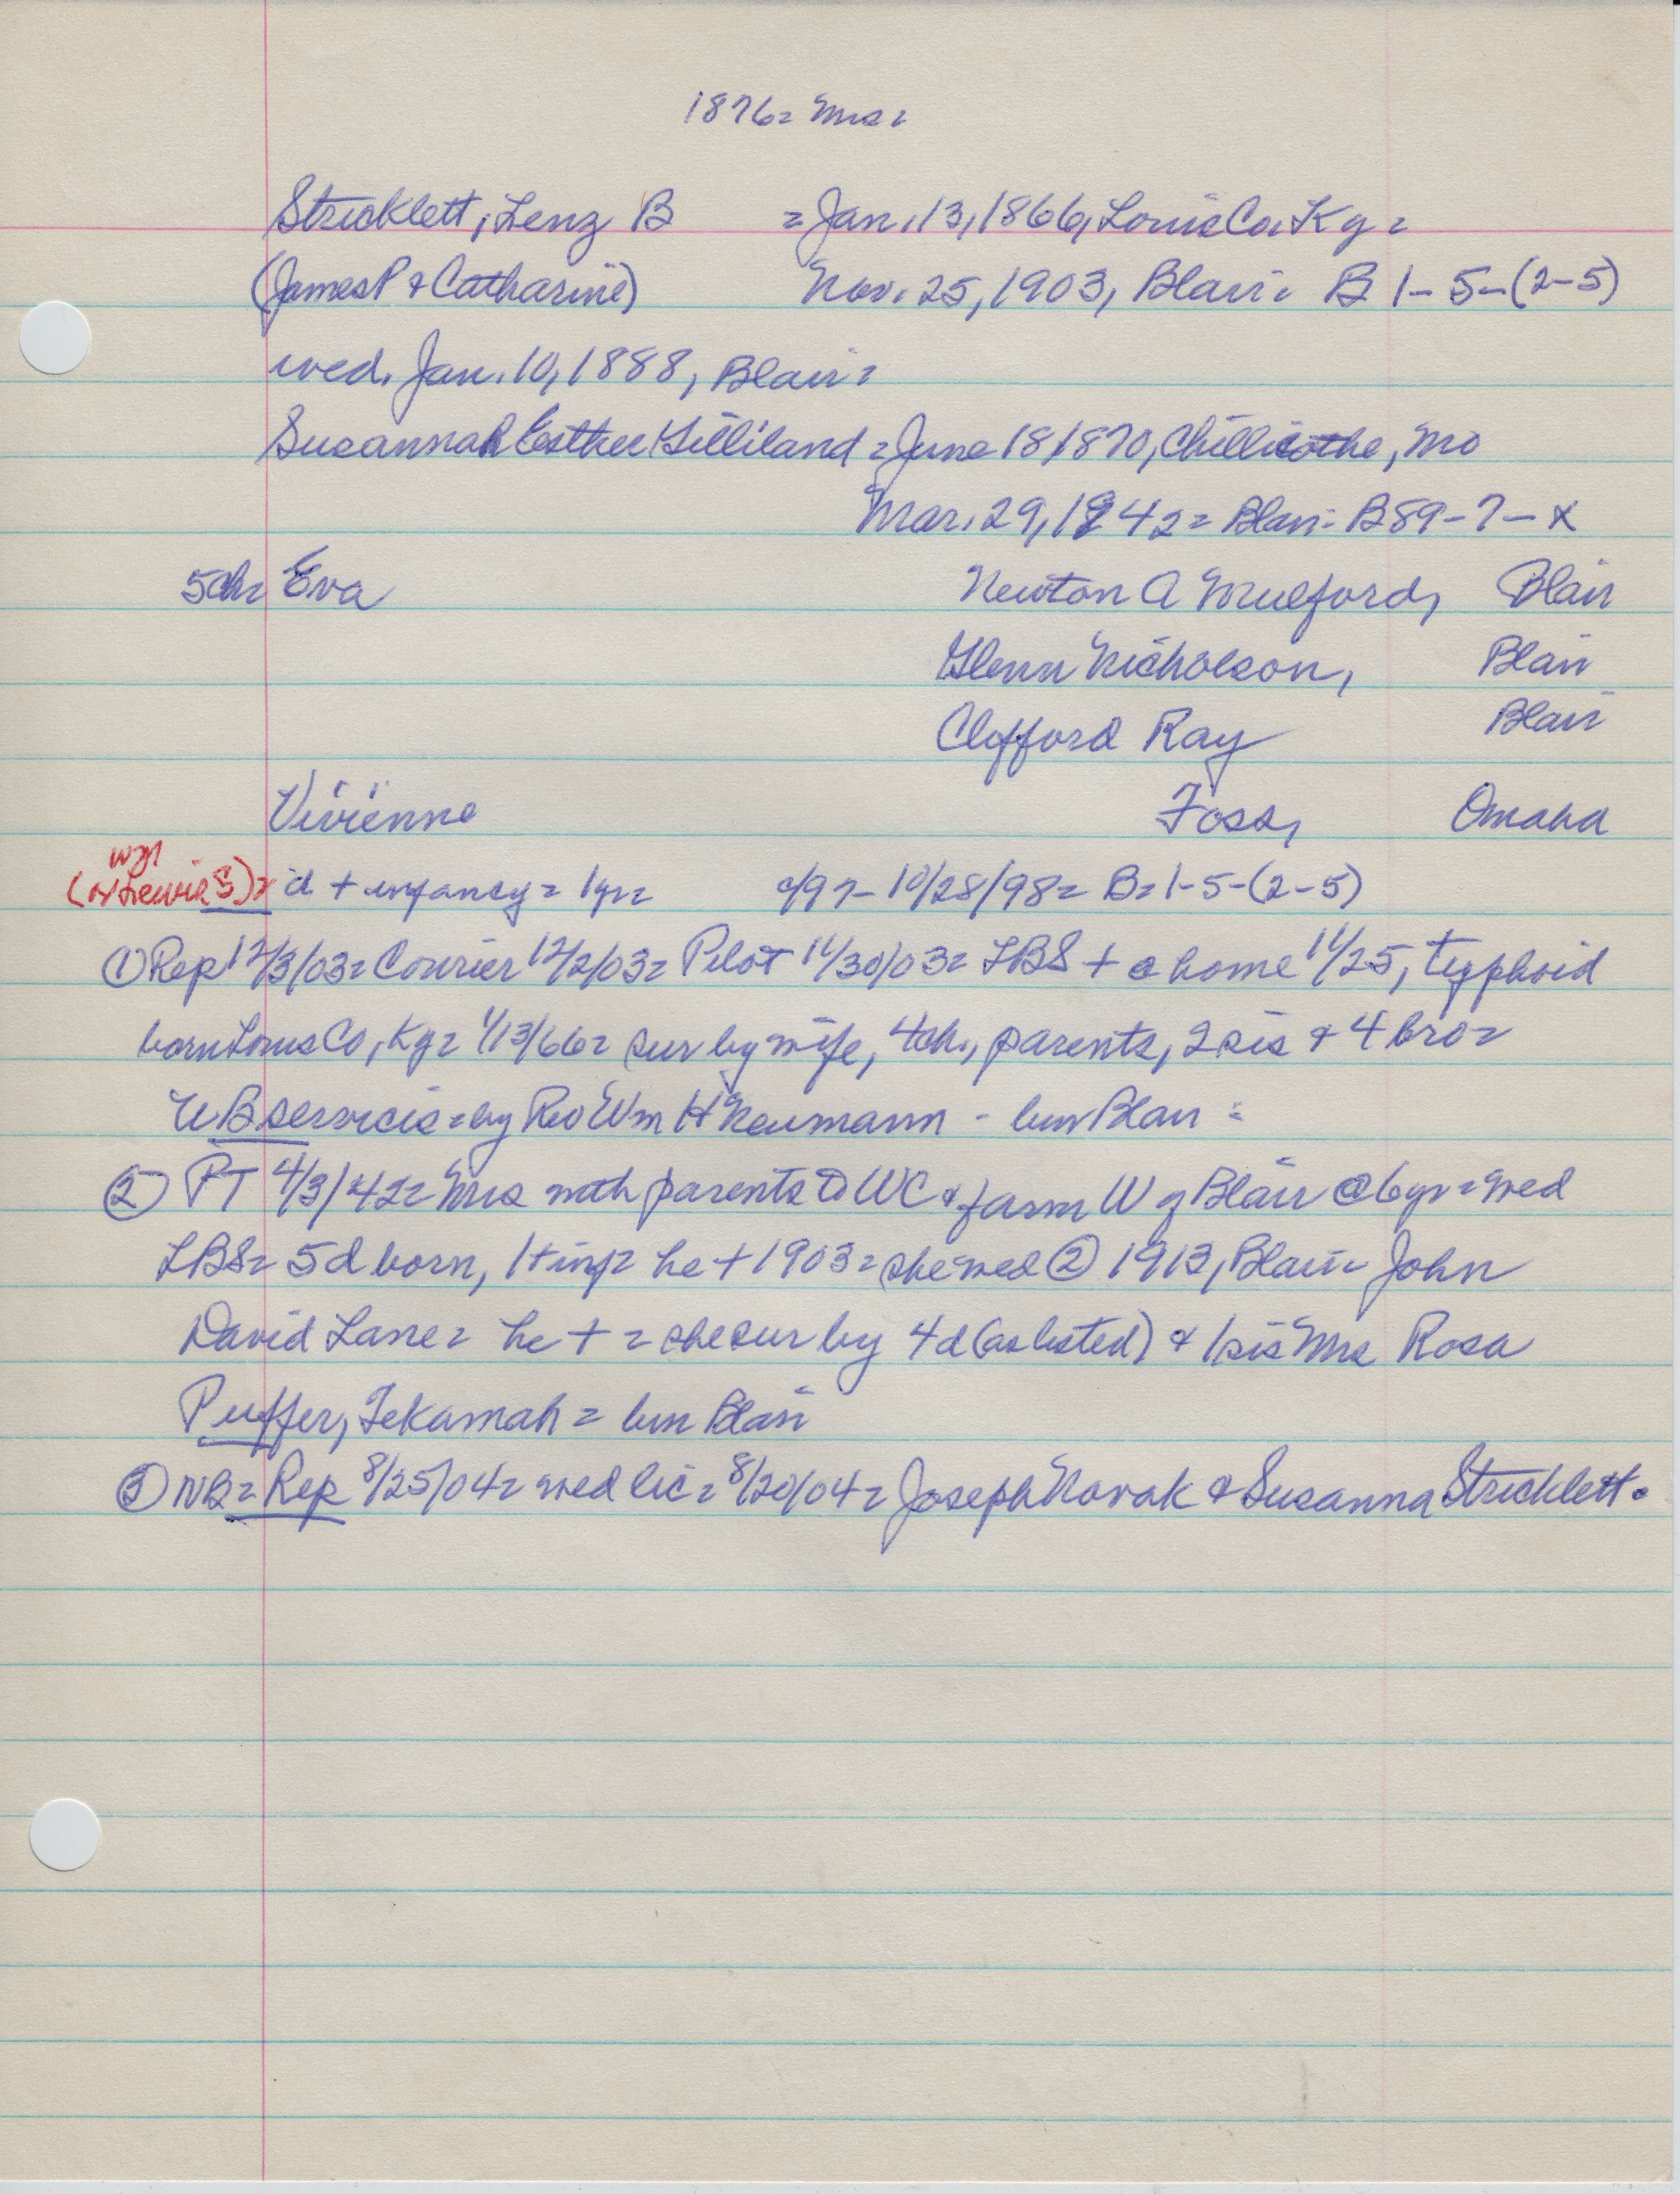 1876= Mrs=
Stricklett, Lenz B = Jan. 13, 1866, Louis Co. Ky =
(James P & Catharine) Nov. 25, 1903, Blair= B 1-5-(2-5)
wed. Jan. 10, 1888, Blair=
Susannah Esther Gilliland = June 18 1870, Chillicothe, Mo
Mar. 29, 1942= Blair= B 89-7-x
5ch= Eva Newton A Mulford, Blair
Glenn Nicholson, Blair
Clofford Ray Blair
Vivienne Foss, Omaha
(or Lewis S)= d + infancy= 1yr= c/97- 10/28/98= B=1-5-(2-5)
① Rep 12/3/03= Courier 12/2/03= Pilot 11/30/03= LBS + @ home 11/25, typhoid
born Louis Co, Ky= 1/13/66= sur by wife, 4ch., parents, 2 sis & 4 bro=
UB services= by Rev Wm H Neumann - bur Blair =
② PT 4/3/42= Mrs with parents to WC & farm W of Blair @ 6yr= wed
LBS= 5d born, 1+inf= he + 1903= she wed ② 1913, Blair= John
David Lane= he + = she sur by 4d (as listed) & 1 sis Mrs Rosa
Puffer, Tekamah = bur Blair
③ NB= Rep 8/25/04= wed lic= 8/20/04= Joseph Novak & Susanna Stricklett.